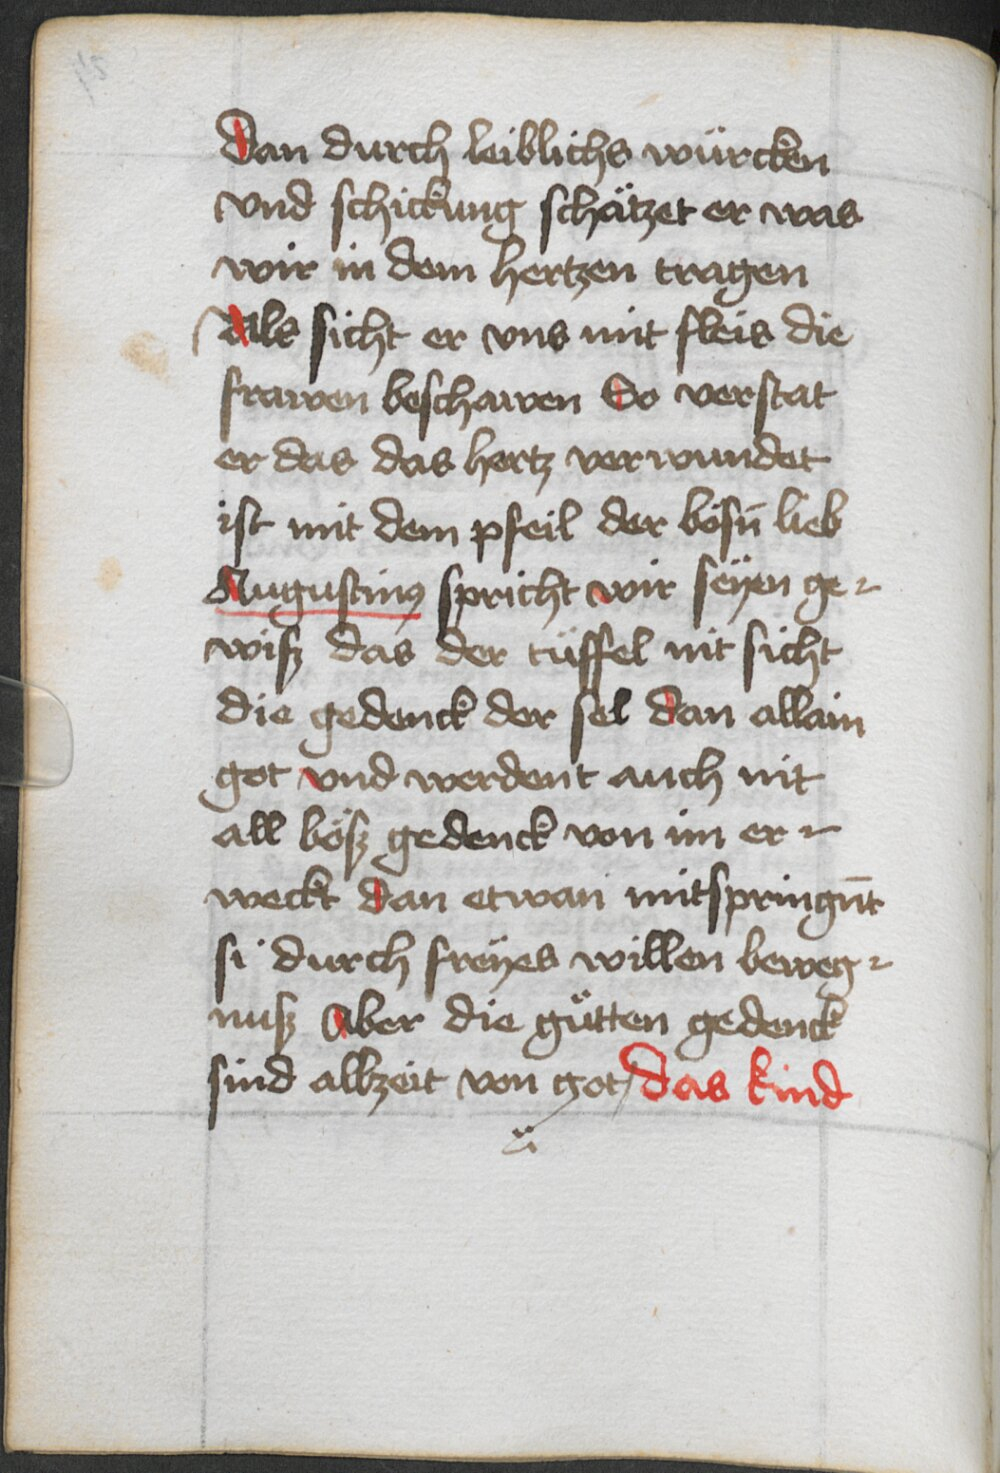 Dan durch leiblichs würcken
vnd schickung schätzet er was
wir in dem hertzen tragen
Als sicht er vns mit fleis die
frawen beschawen So verstat
er das das hertz verwundet
ist mit dem pfeil der bösn̄ lieb
Augustinꝯ spricht wir seÿen ge-
wisz das der tüffel nit sicht
die gedenck der sel dan allain
got vnd werdent auch nit
all bösz gedenck von im er-
weckt dan etwan mitspringn̄t
si durch freÿes willen beweg-
nusz Aber die gütten gedenck
sind allzeit von got / das kind